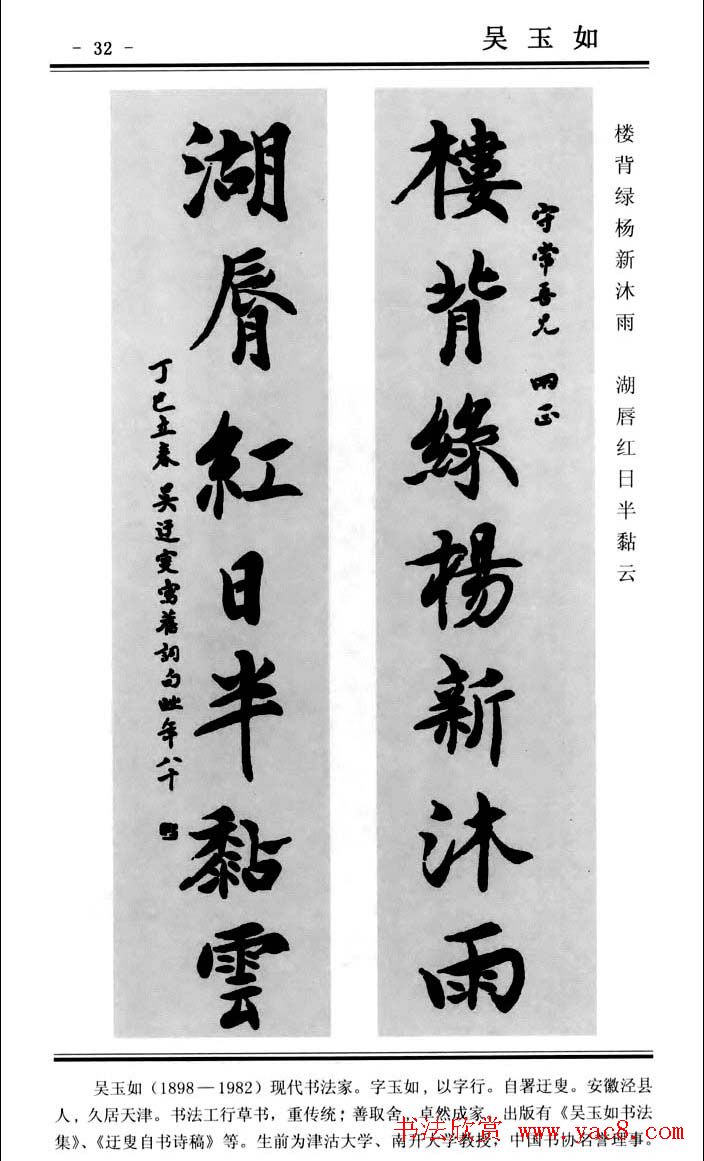 - 32 -
吴玉如
楼背绿杨新沐雨 湖唇红日半黏云
樓背綠楊新沐雨
守常吾兄 两正
湖脣紅日半黏雲
丁巳立春 吴迂叟寫舊詞句此年八十
吴玉如(1898—1982)现代书法家。字玉如，以字行。自署迂叟。安徽泾县
人，久居天津。书法工行草书，重传统；善取舍，卓然成家。出版有《吴玉如书法
集》、《迂叟自书诗稿》等。生前为津沽大学、南开大学教授，中国书协名誉理事。
书法欣赏 www.yac8.com